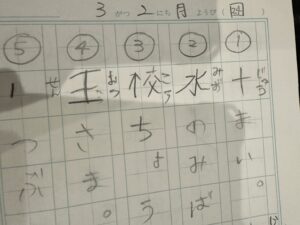 3がつ2にち月ようび
①
十じゅうまい。
②
水みずのみば。
③
校こうちょう
④
王おうさま。
⑤
せんつぶ